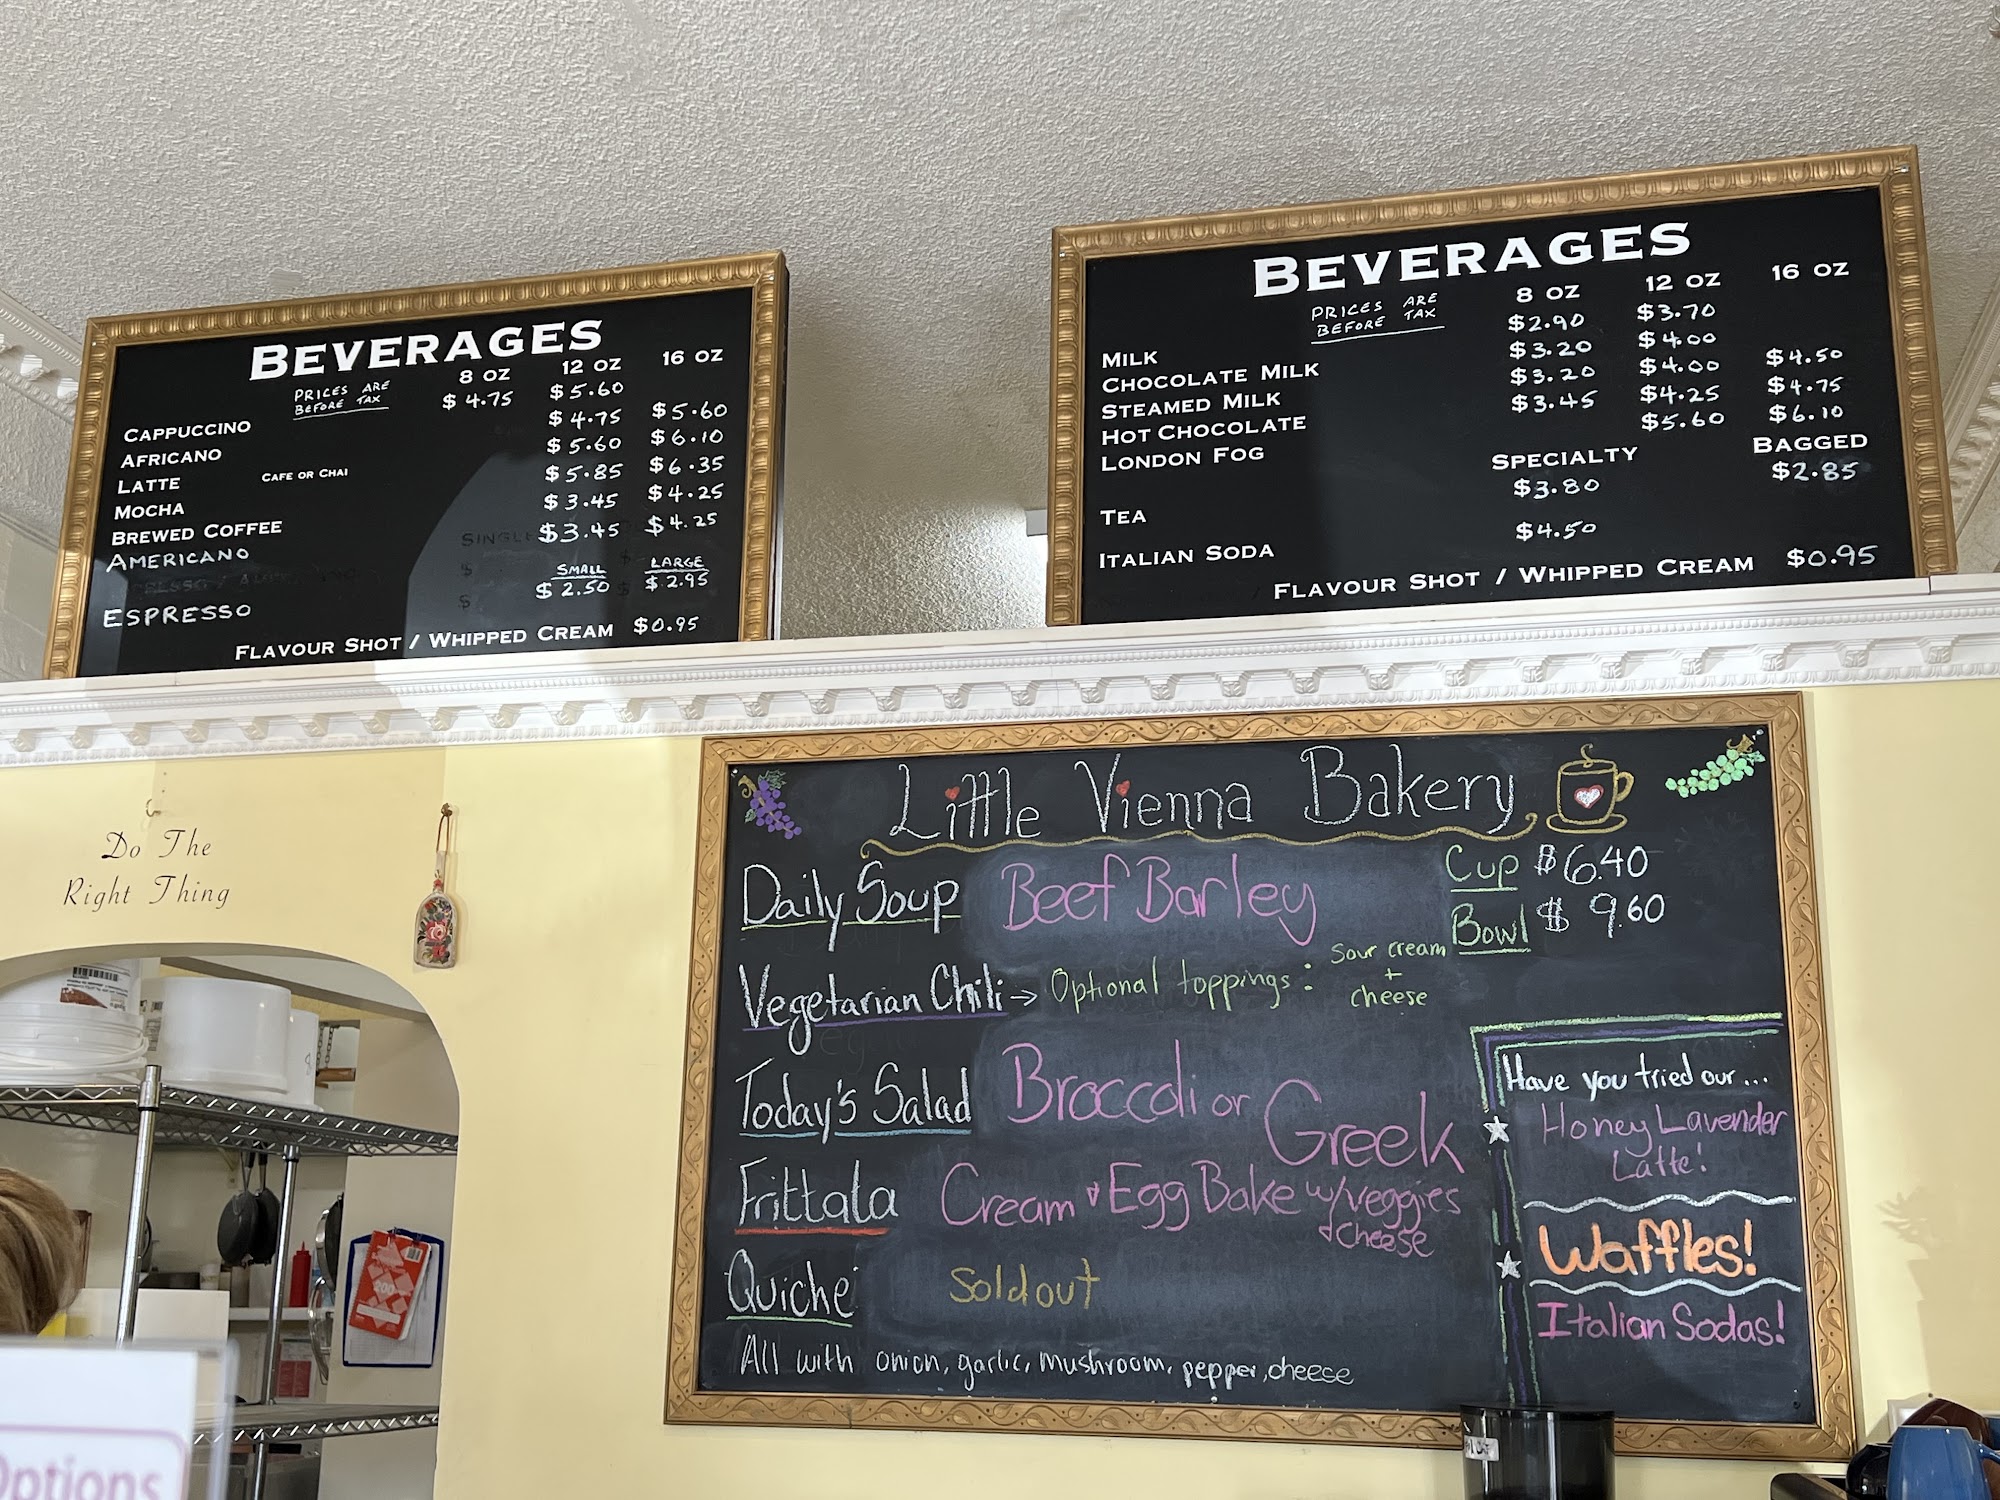 BEVERAGES
PRICES ARE BEFORE TAX
8 OZ 12 OZ 16 OZ
CAPPUCCINO $4.75 $5.60
AFRICANO $4.75 $5.60
LATTE CAFE OR CHAI $5.60 $6.10
MOCHA $5.85 $6.35
BREWED COFFEE $3.45 $4.25
AMERICANO $3.45 $4.25
SMALL LARGE
ESPRESSO $2.50 $2.95
FLAVOUR SHOT / WHIPPED CREAM $0.95
BEVERAGES
PRICES ARE BEFORE TAX
8 OZ 12 OZ 16 OZ
MILK $2.90 $3.70
CHOCOLATE MILK $3.20 $4.00
STEAMED MILK $3.20 $4.00 $4.50
HOT CHOCOLATE $3.45 $4.25 $4.75
LONDON FOG $5.60 $6.10
SPECIALTY BAGGED
TEA $3.80 $2.85
ITALIAN SODA $4.50
FLAVOUR SHOT / WHIPPED CREAM $0.95
Do The
Right Thing
Little Vienna Bakery
Daily Soup Beef Barley
Cup $6.40
Bowl $9.60
Vegetarian Chili → Optional toppings: sour cream + cheese
Today's Salad Broccoli or Greek
Frittata Cream & Egg Bake w/veggies & cheese
Quiche Sold out
All with onion, garlic, mushroom, pepper, cheese
Have you tried our...
Honey Lavender
Latte!
Waffles!
Italian Sodas!
Options